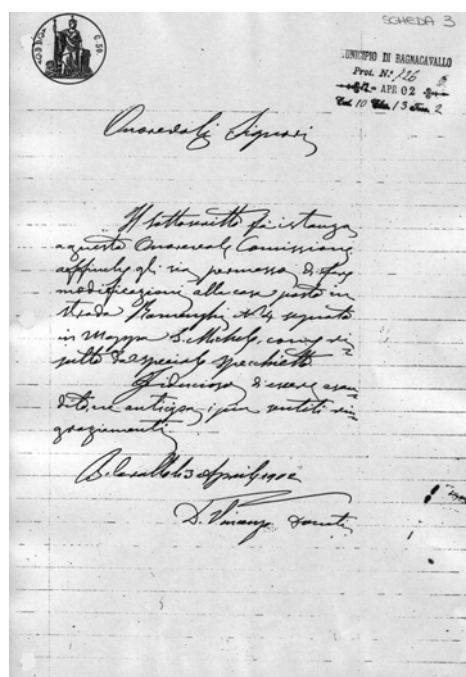 SCHEDA 3
C. 50
MUNICIPIO DI BAGNACAVALLO
Prot. N.° 226
APR 02
Cat. 10 Clas. 13 Fasc. 2
Onorevoli Signori
Il sottoscritto fà istanza
a questa Onorevole Comissione
affinché gli sia permesso di fare
modificazioni alla casa posta in
strada Ramenghi N 4 segnata
in Mappa S. Michele, come ri=
sulta da speciale specchietto.
Fiducioso d'essere esau=
dito, ne anticipa i più sentiti rin=
graziamenti.
B. Cavallo li 3 Aprile 1902
D. Vincenzo Donati